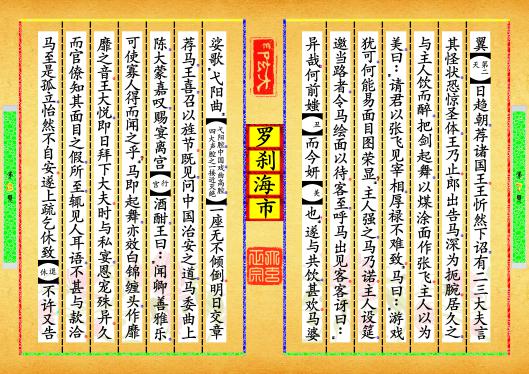 翼【第二天】日趋朝荐诸国王王忻然下诏有二三大夫言
其怪状恐惊圣体王乃止郎出告马深为扼腕居久之
与主人饮而醉把剑起舞以煤涂面作张飞主人以为
美曰：请君以张飞见宰相厚禄不难致马曰：游戏
犹可何能易面目图荣显主人强之马乃诺主人设筵
邀当路者令马绘面以待客至呼马出见客客讶曰：
异哉何前媸【丑】而今妍【美】也遂与共饮甚欢马婆
罗刹海市
娑歌弋阳曲
一座无不倾倒明日交章
荐马王喜召以旌节既见问中国治安之道马委曲上
陈大蒙嘉叹赐宴离宫【行宫】酒酣王曰：闻卿善雅乐
可使寡人得而闻之乎马即起舞亦效白锦缠头作靡
靡之音王大悦即日拜下大夫时与私宴恩宠殊异久
而官僚知其面目之假所至辄见人耳语不甚与款洽
马至是孤立怡然不自安遂上疏乞休致【退休】不许又告